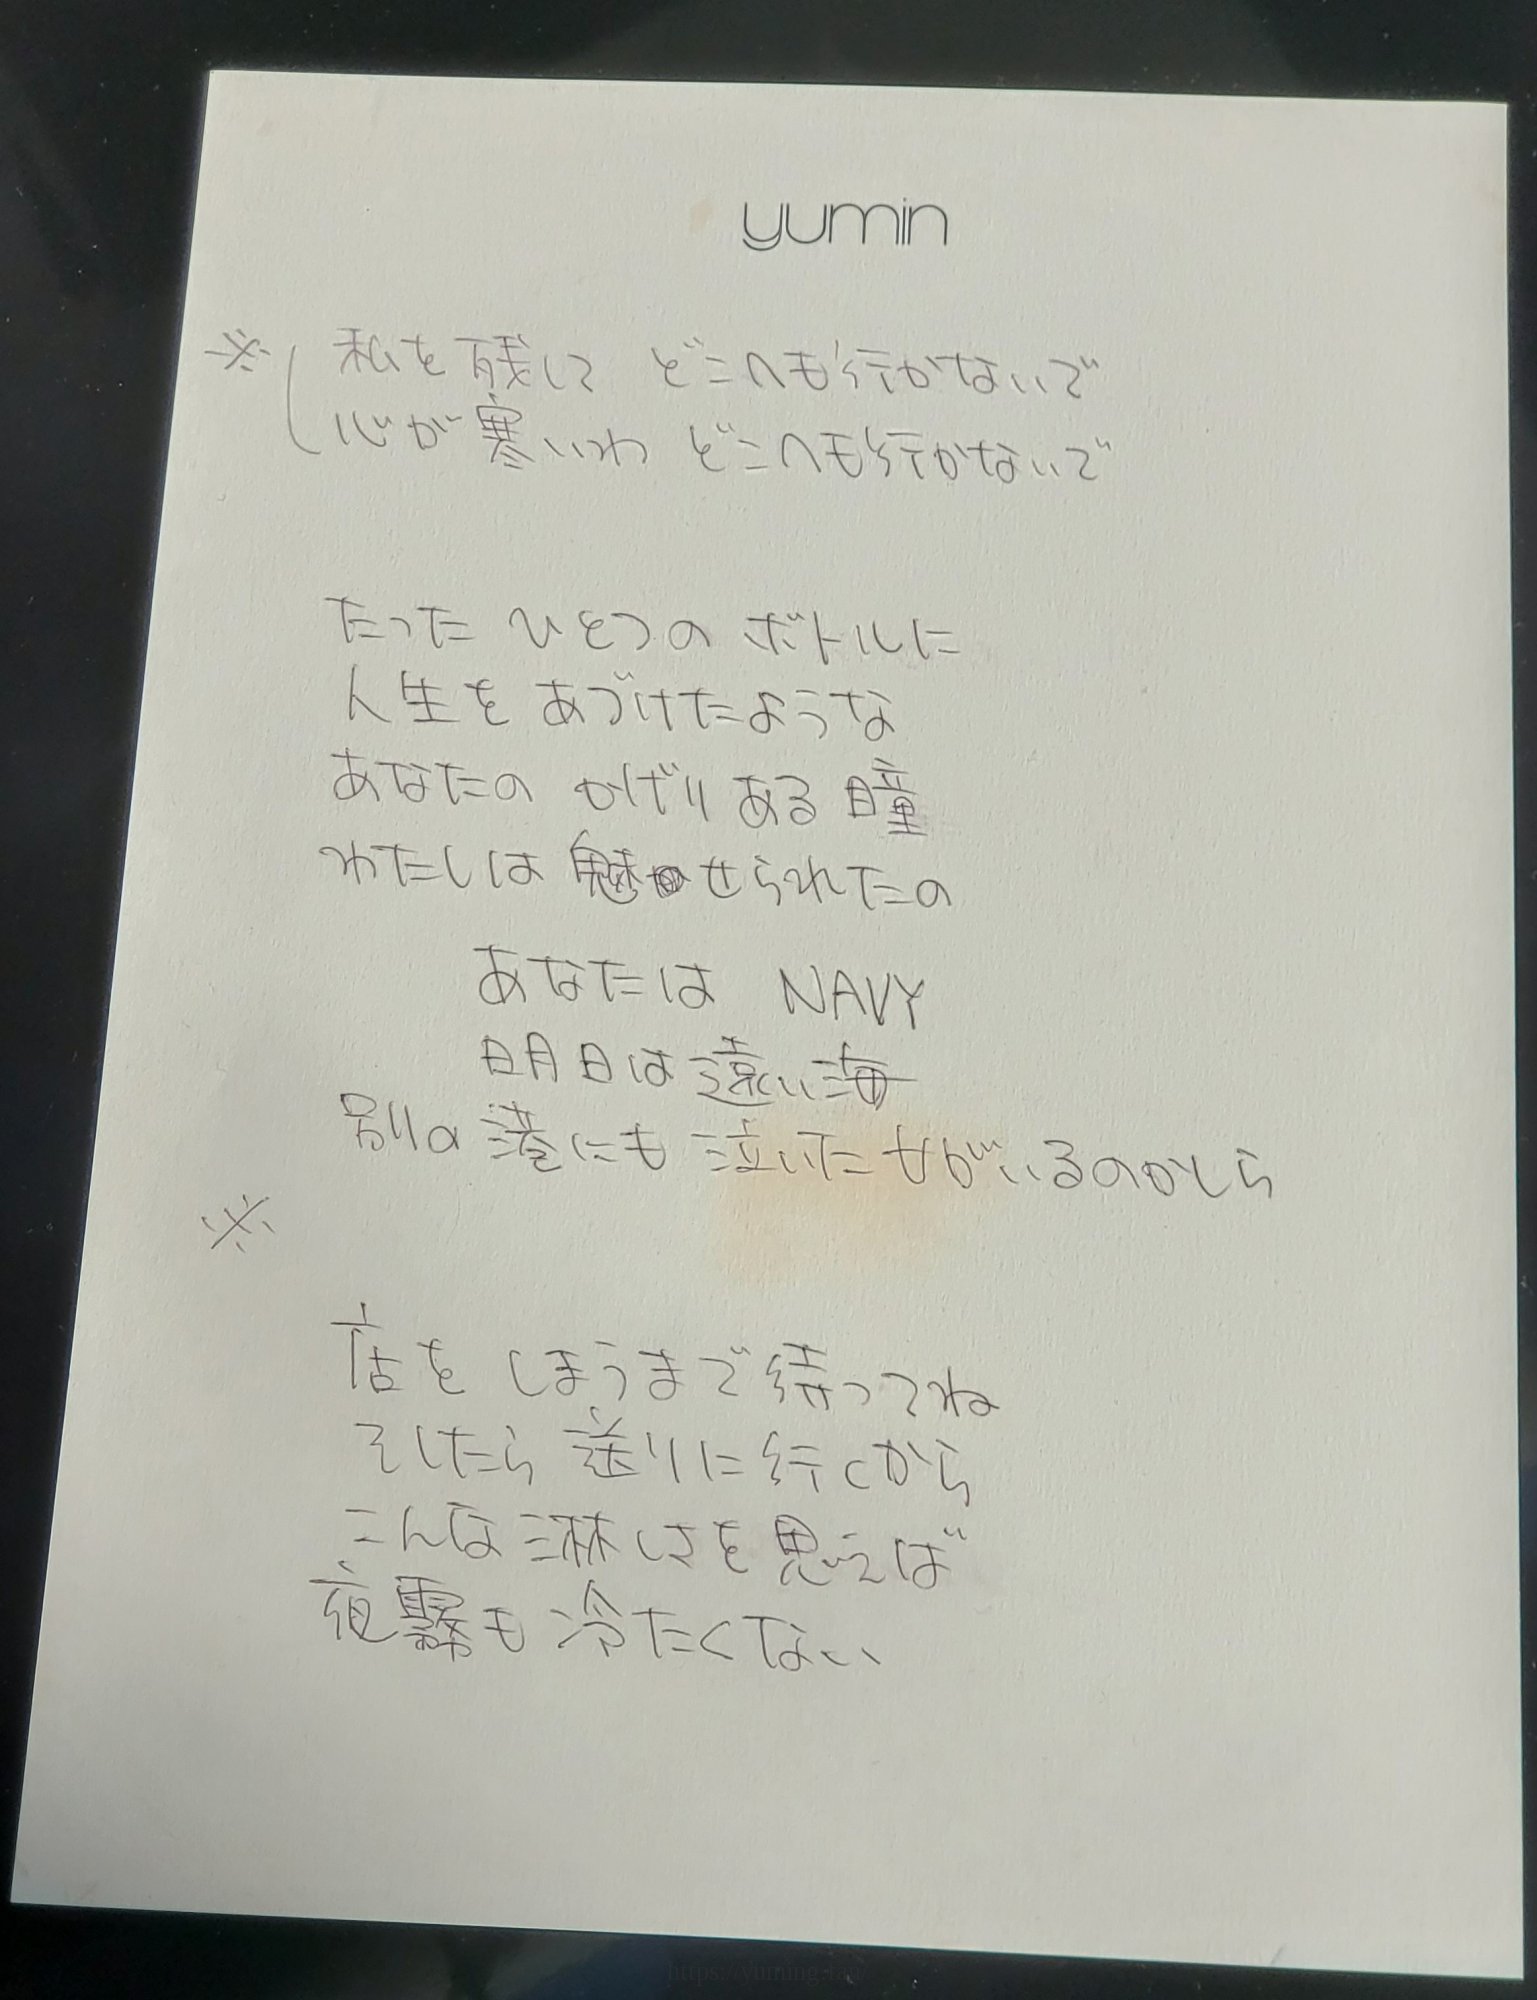 yumin
※ 私を残して どこへも行かないで
心が寒いわ どこへも行かないで
たった ひとつの ボトルに
人生を あづけたような
あなたの かげり ある 瞳
わたしは 魅せられたの
あなたは NAVY
明日は 遠い海
別の 港にも 泣いた 女が いるのかしら
※
店を しまうまで 待ってね
そしたら 送りに行くから
こんな 淋しさを 思えば
夜霧も 冷たくない